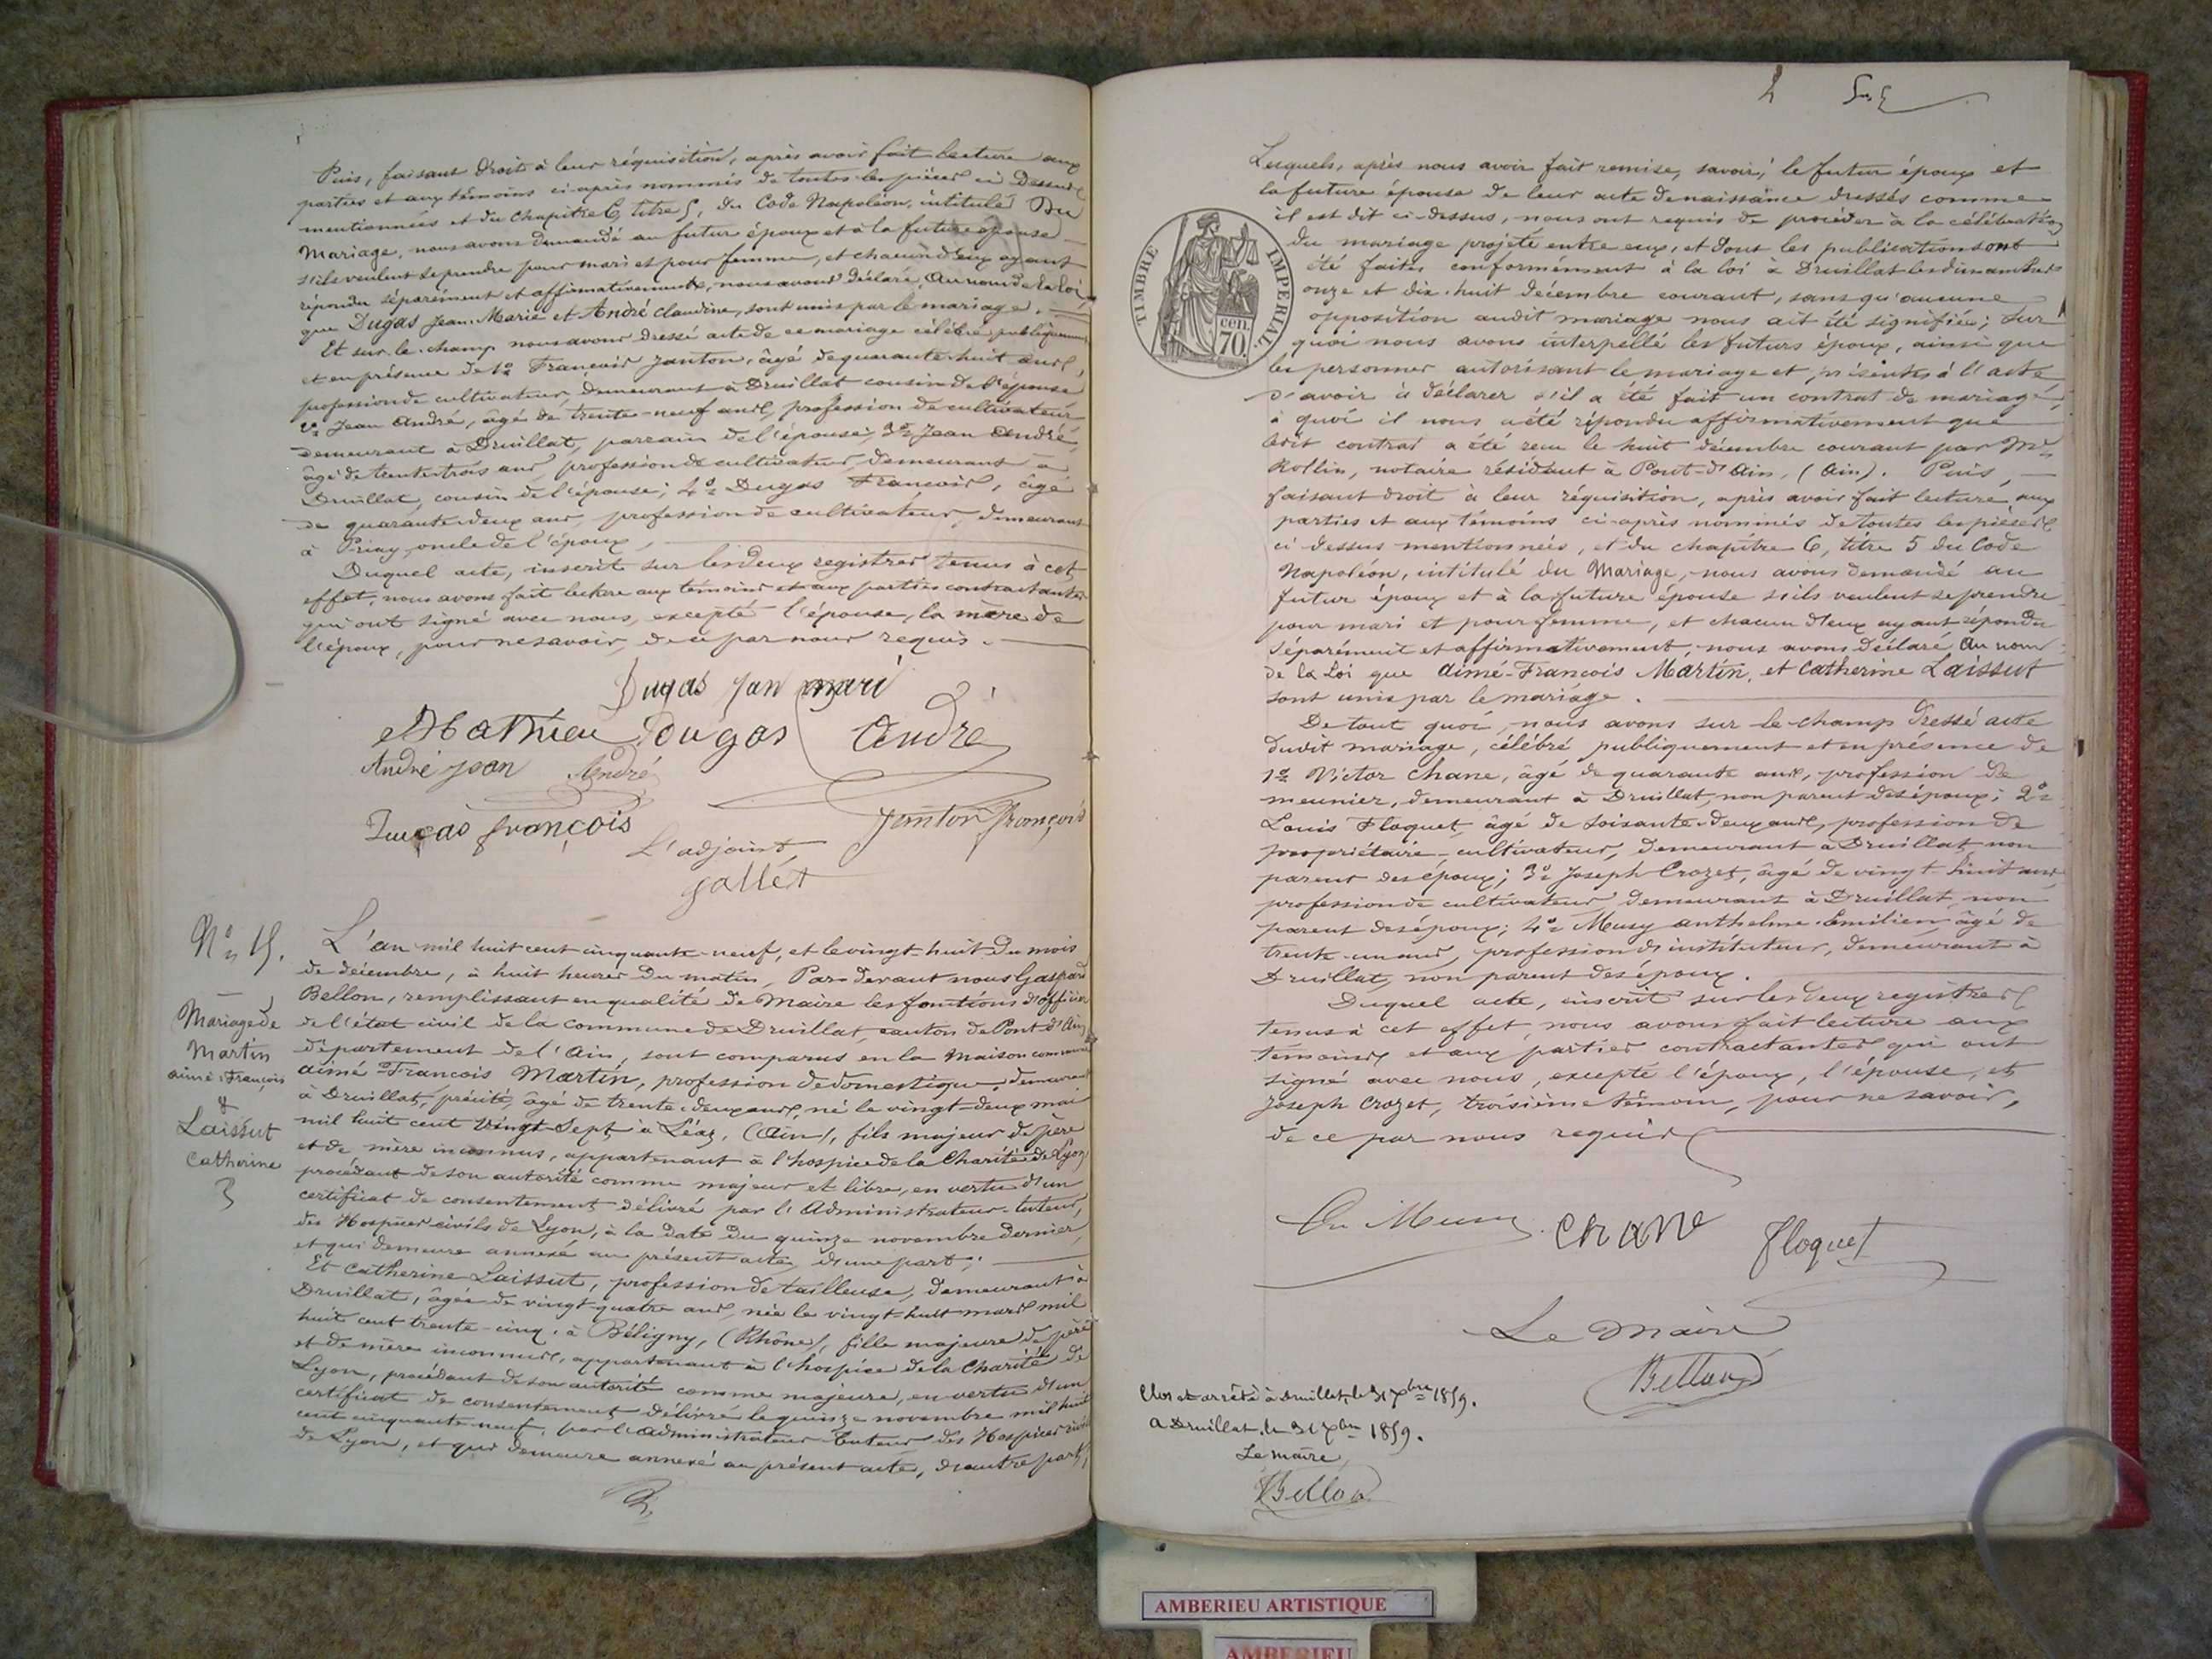 Puis, faisant droit à leur réquisition, après avoir fait lecture aux
parties et aux témoins ci-après nommés de toutes les pièces ci dessus
mentionnées et du chapitre 6, titre 5, du Code Napoléon, intitulé Du
Mariage, nous avons demandé au futur époux et à la future épouse
s'ils veulent se prendre pour mari et pour femme, et chacun d'eux ayant
répondu séparément et affirmativement, nous avons déclaré, Au nom de la Loi
que Dugas Jean-Marie et André Claudine, sont unis par le mariage.
Et sur-le-champ nous avons dressé acte de ce mariage célébré publiquement
et en présence de 1º François Janton, âgé de quarante-huit ans,
profession de cultivateur, demeurant à Druillat cousin de l'épouse
2º Jean André, âgé de trente-neuf ans, profession de cultivateur
demeurant à Druillat, parrain de l'épouse; 3º Jean André,
âgé de trente-trois ans profession de cultivateur, demeurant à
Druillat, cousin de l'épouse; 4º Dugas François, âgé
de quarante-deux ans, profession de cultivateur, demeurant
à Priay, oncle de l'époux,
Duquel acte, inscrit sur les deux registres tenus à cet
effet, nous avons fait lecture aux témoins et aux parties contractantes
qui ont signé avec nous, excepté l'épouse, la mère de
l'époux, pour ne savoir, de ce par nous requis.
Dugas jan mari
Mathieu Dugas André
André jean André
Dugas françois Janton François
L'adjoint
Gallet
Nº 15.
Mariage de
Martin
aimé-François
&
Laissut
Catherine
L'an mil huit cent cinquante-neuf, et le vingt-huit du mois
de décembre, à huit heures du matin, Par-devant nous Gaspard
Bellon, remplissant en qualité de Maire les fonctions d'officier
de l'état civil de la commune de Druillat, canton de Pont-d'Ain
département de l'Ain, sont comparus en la maison commune
aimé-François Martin, profession de domestique, demeurant
à Druillat, précité, âgé de trente-deux ans, né le vingt-deux mai
mil huit cent vingt-sept à Léaz, (Ain), fils majeur de père
et de mère inconnus, appartenant à l'hospice de la Charité de Lyon
procédant de son autorité comme majeur et libre, en vertu d'un
certificat de consentement délivré par l'Administrateur-tuteur,
des Hospices civils de Lyon, à la date du quinze novembre dernier,
et qui demeure annexé au présent acte, d'une part;
Et Catherine Laissut, profession de tailleuse, demeurant à
Druillat, âgée de vingt-quatre ans, née le vingt-huit mars mil
huit cent trente-cinq, à Béligny, (Rhône), fille majeure de père
et de mère inconnus, appartenant à l'hospice de la Charité de
Lyon, procédant de son autorité comme majeure, en vertu d'un
certificat de consentement délivré le quinze novembre mil huit
cent cinquante-neuf, par l'Administrateur-Tuteur des Hospices civils
de Lyon, et qui demeure annexé au présent acte, d'autre part,
Lesquels, après nous avoir fait remise, savoir; le futur époux et
la future épouse de leur acte de naissance dressés comme
il est dit ci-dessus, nous ont requis de procéder à la célébration
du mariage projeté entre eux, et dont les publications ont
été faites conformément à la loi à Druillat les dimanches
onze et dix-huit décembre courant, sans qu'aucune
opposition audit mariage nous ait été signifiée; sur
quoi nous avons interpellé les futurs époux, ainsi que
les personnes autorisant le mariage et présentes à l'acte
d'avoir à déclarer s'il a été fait un contrat de mariage,
à quoi il nous a été répondu affirmativement que
ledit contrat a été reçu le huit décembre courant par Me
Rollin, notaire résidant à Pont-d'Ain, (Ain). Puis,
faisant droit à leur réquisition, après avoir fait lecture aux
parties et aux témoins ci-après nommés de toutes les pièces
ci-dessus mentionnées, et du chapitre 6, titre 5 du Code
Napoléon, intitulé du Mariage, nous avons demandé au
futur époux et à la future épouse s'ils veulent se prendre
pour mari et pour femme, et chacun d'eux ayant répondu
séparément et affirmativement, nous avons déclaré Au nom
de la Loi que Aimé-François Martin, et Catherine Laissut
sont unis par le mariage.
De tout quoi nous avons sur-le-champ dressé acte
dudit mariage, célébré publiquement et en présence de
1º Victor Chane, âgé de quarante ans, profession de
meunier, demeurant à Druillat, non parent des époux; 2º
Louis Floquet, âgé de soixante-deux ans, profession de
propriétaire-cultivateur, demeurant à Druillat, non
parent des époux; 3º Joseph Crozet, âgé de vingt-huit ans,
profession de cultivateur, demeurant à Druillat, non
parent des époux; 4º Musy anthelme-Emilien, âgé de
trente-un ans, profession d'instituteur, demeurant à
Druillat, non parent des époux.
Duquel acte, inscrit sur les deux registres
tenus à cet effet, nous avons fait lecture aux
témoins et aux parties contractantes qui ont
signé avec nous, excepté l'époux, l'épouse, et
Joseph Crozet, troisième témoin, pour ne savoir,
de ce par nous requis
Musy CHANE Floquet
Le Maire
Bellon
Clos et arrêté à Druillat, le 31 Xbre 1859.
A Druillat, le 31 Xbre 1859.
Le maire,
Bellon
TIMBRE IMPERIAL
cen.
70.
AMBERIEU ARTISTIQUE
AMBERIEU